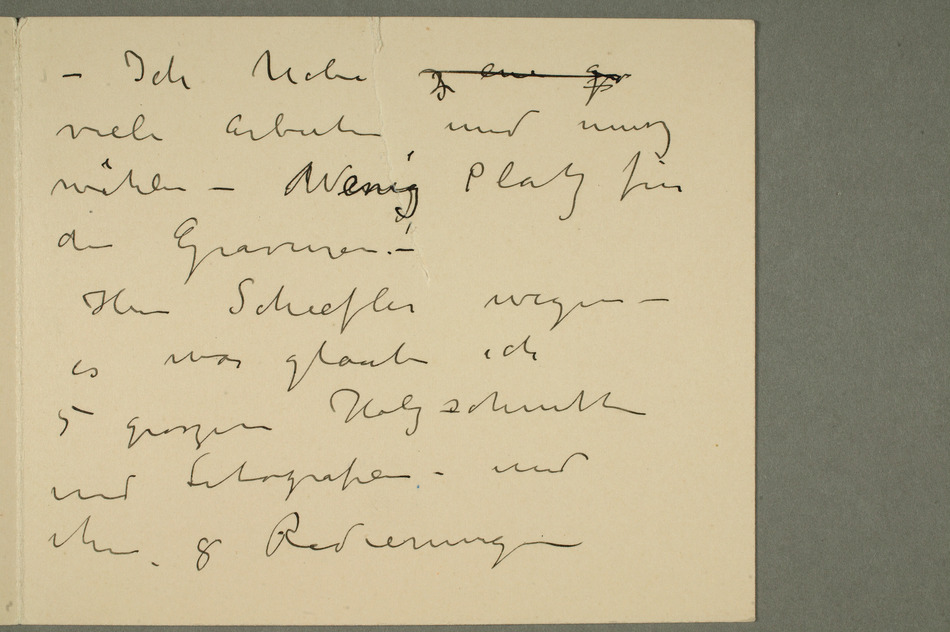 – Ich habe
viele arbeiten und musz
wählen – Wenig Platz für
die Gravuren. –
Herr Schiefler wegen –
es war glaube ich
5 groszen Holzschnitte
und Litografien – und
8 Radierungen